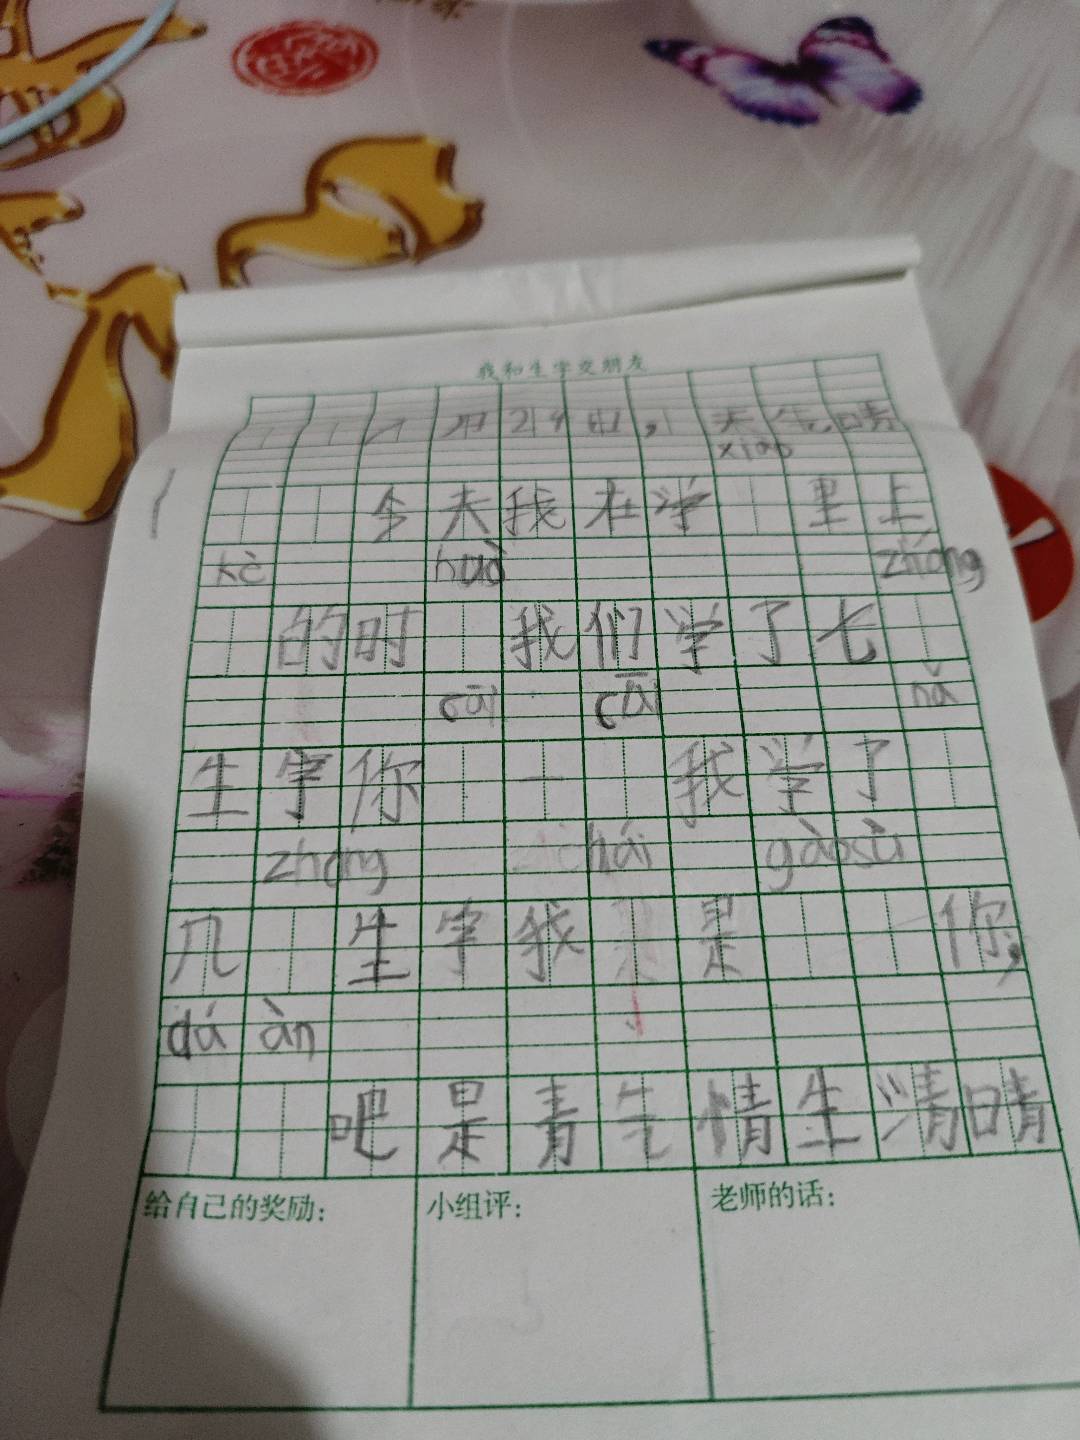 我和生字交朋友
月24日，天气晴
xiào
今天我在学 里上
kè huò zhǒng
的时 我们学了七
cāi cāi nǎ
生字你 一 我学了
zhǒng hái gàosù
几 生字我 是 你，
dá àn
吧是青气情生清晴
给自己的奖励：
小组评：
老师的话：